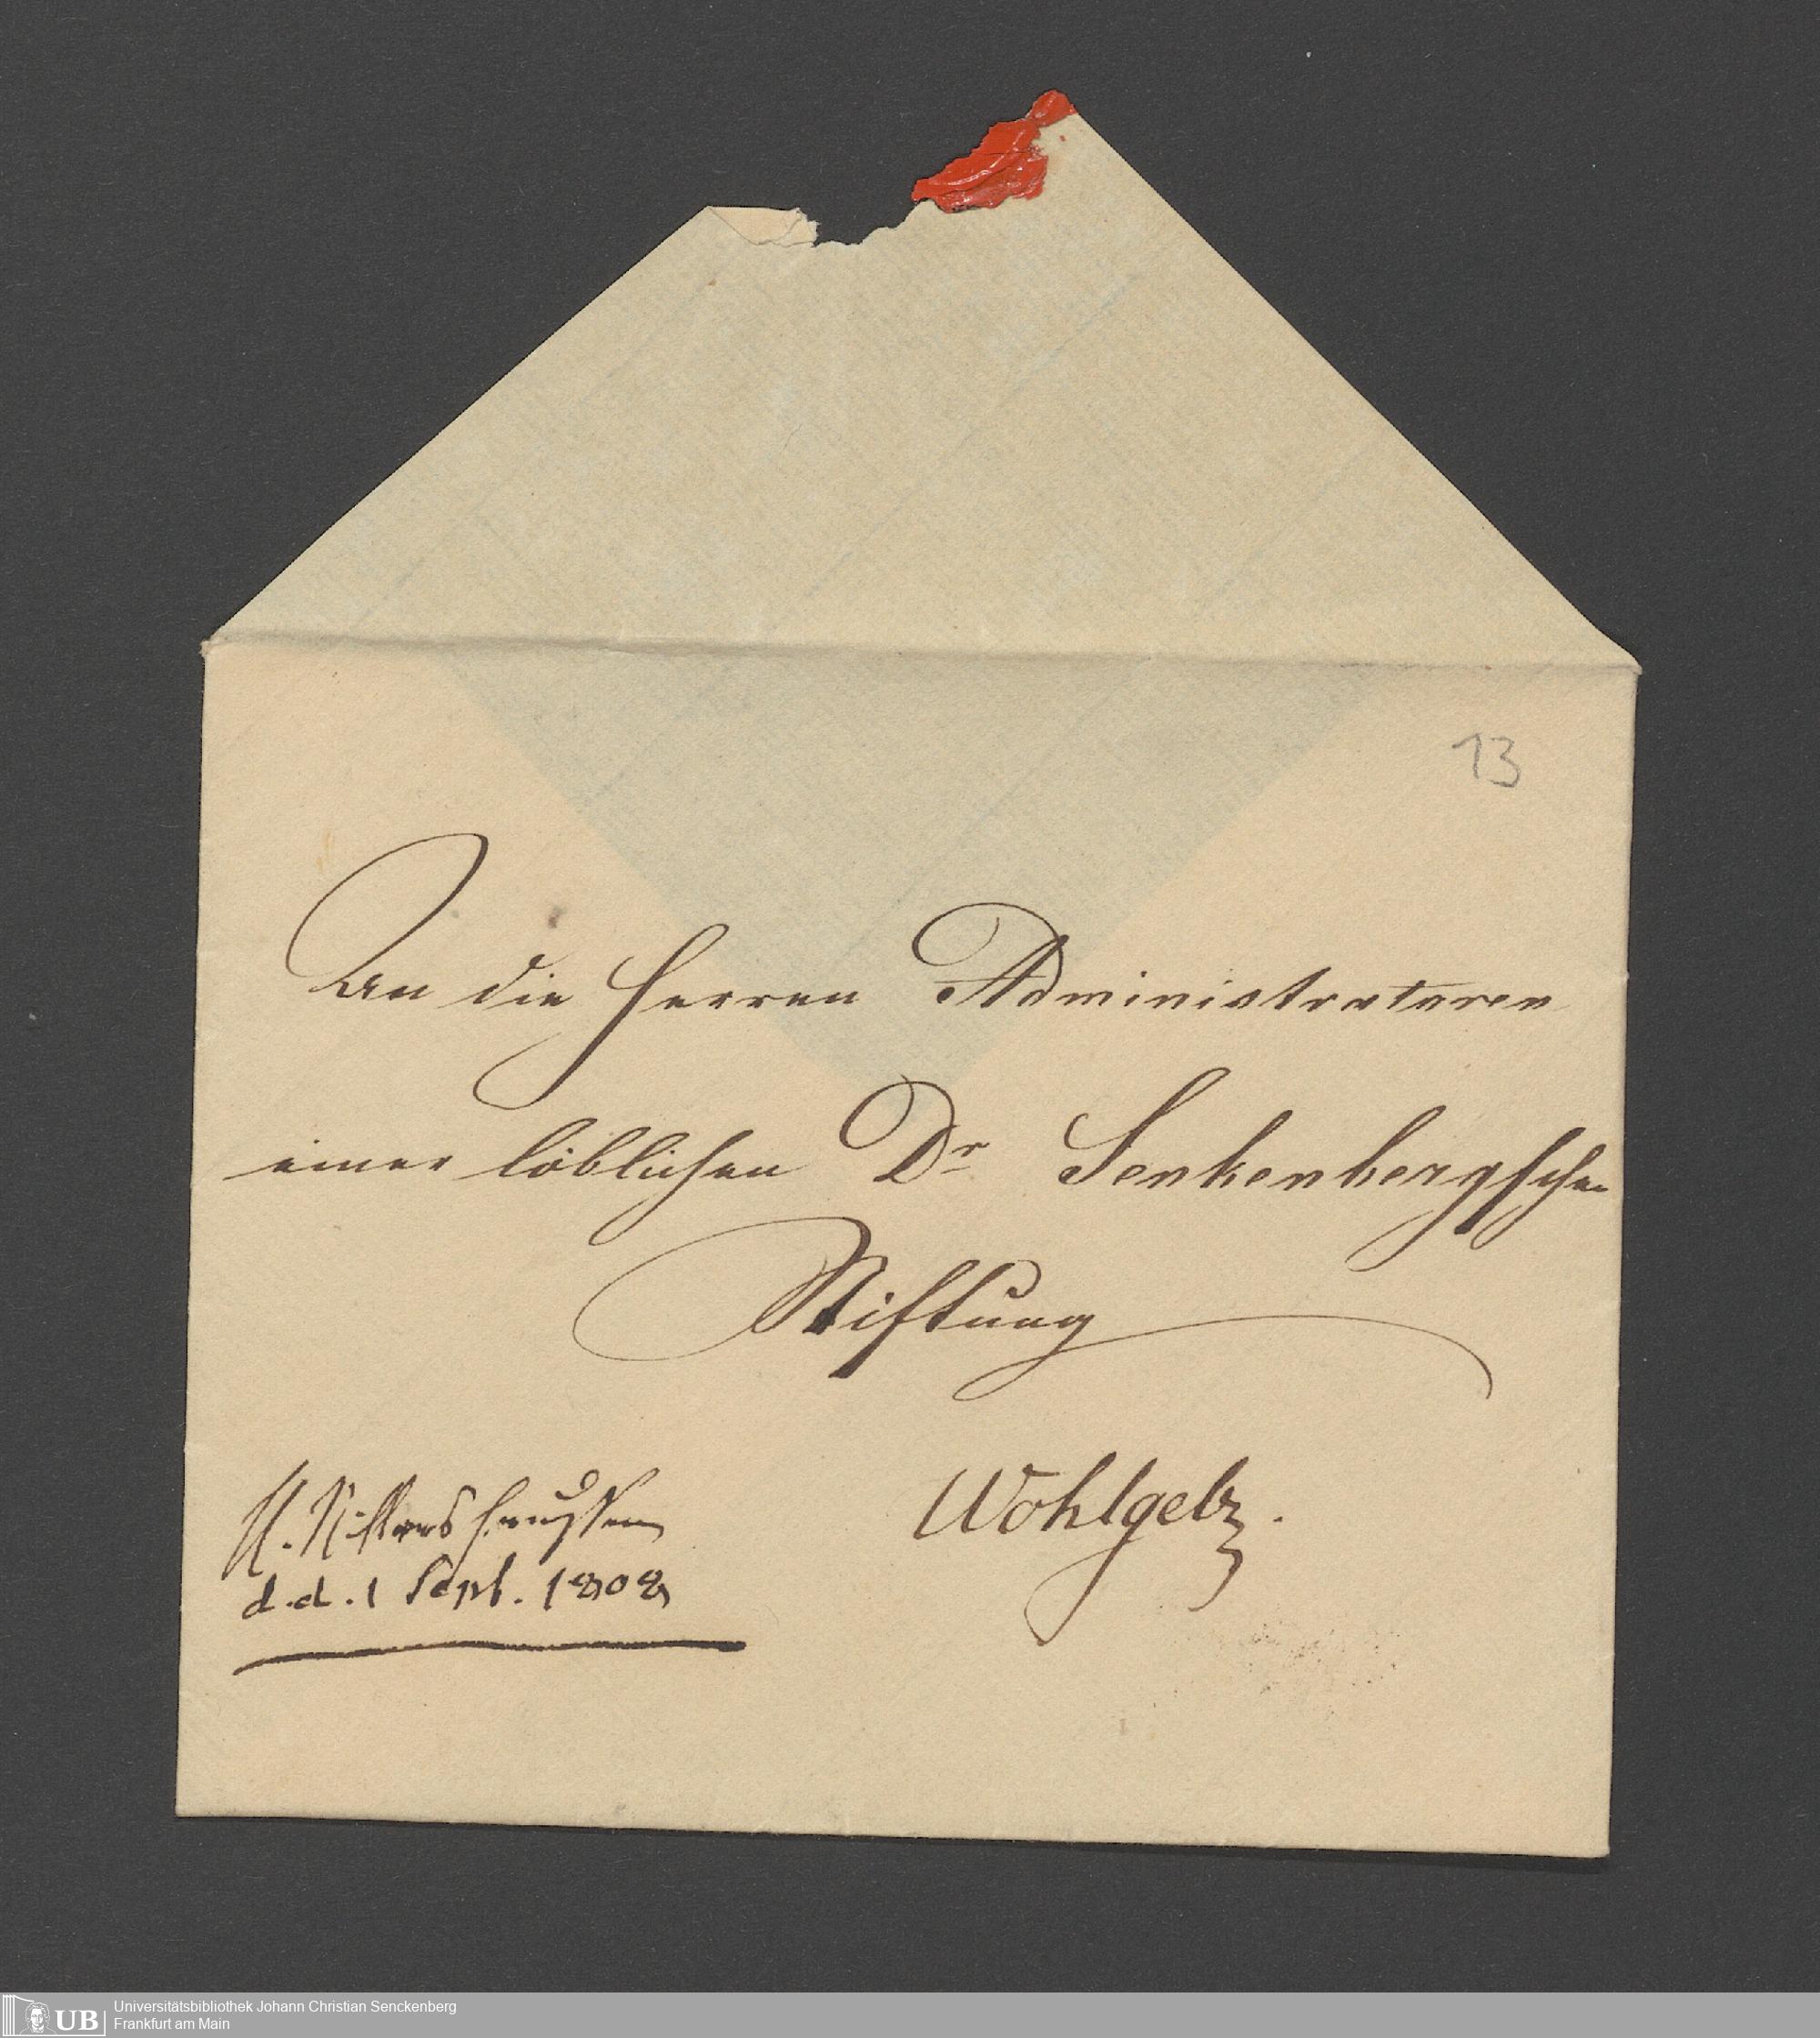 13
An die Herren Administratoren
einer löblichen Dr Senkenbergschen
Stiftung
Wohlgeb.
d.d. 1 Sept. 1808
UB
Universitätsbibliothek Johann Christian Senckenberg
Frankfurt am Main